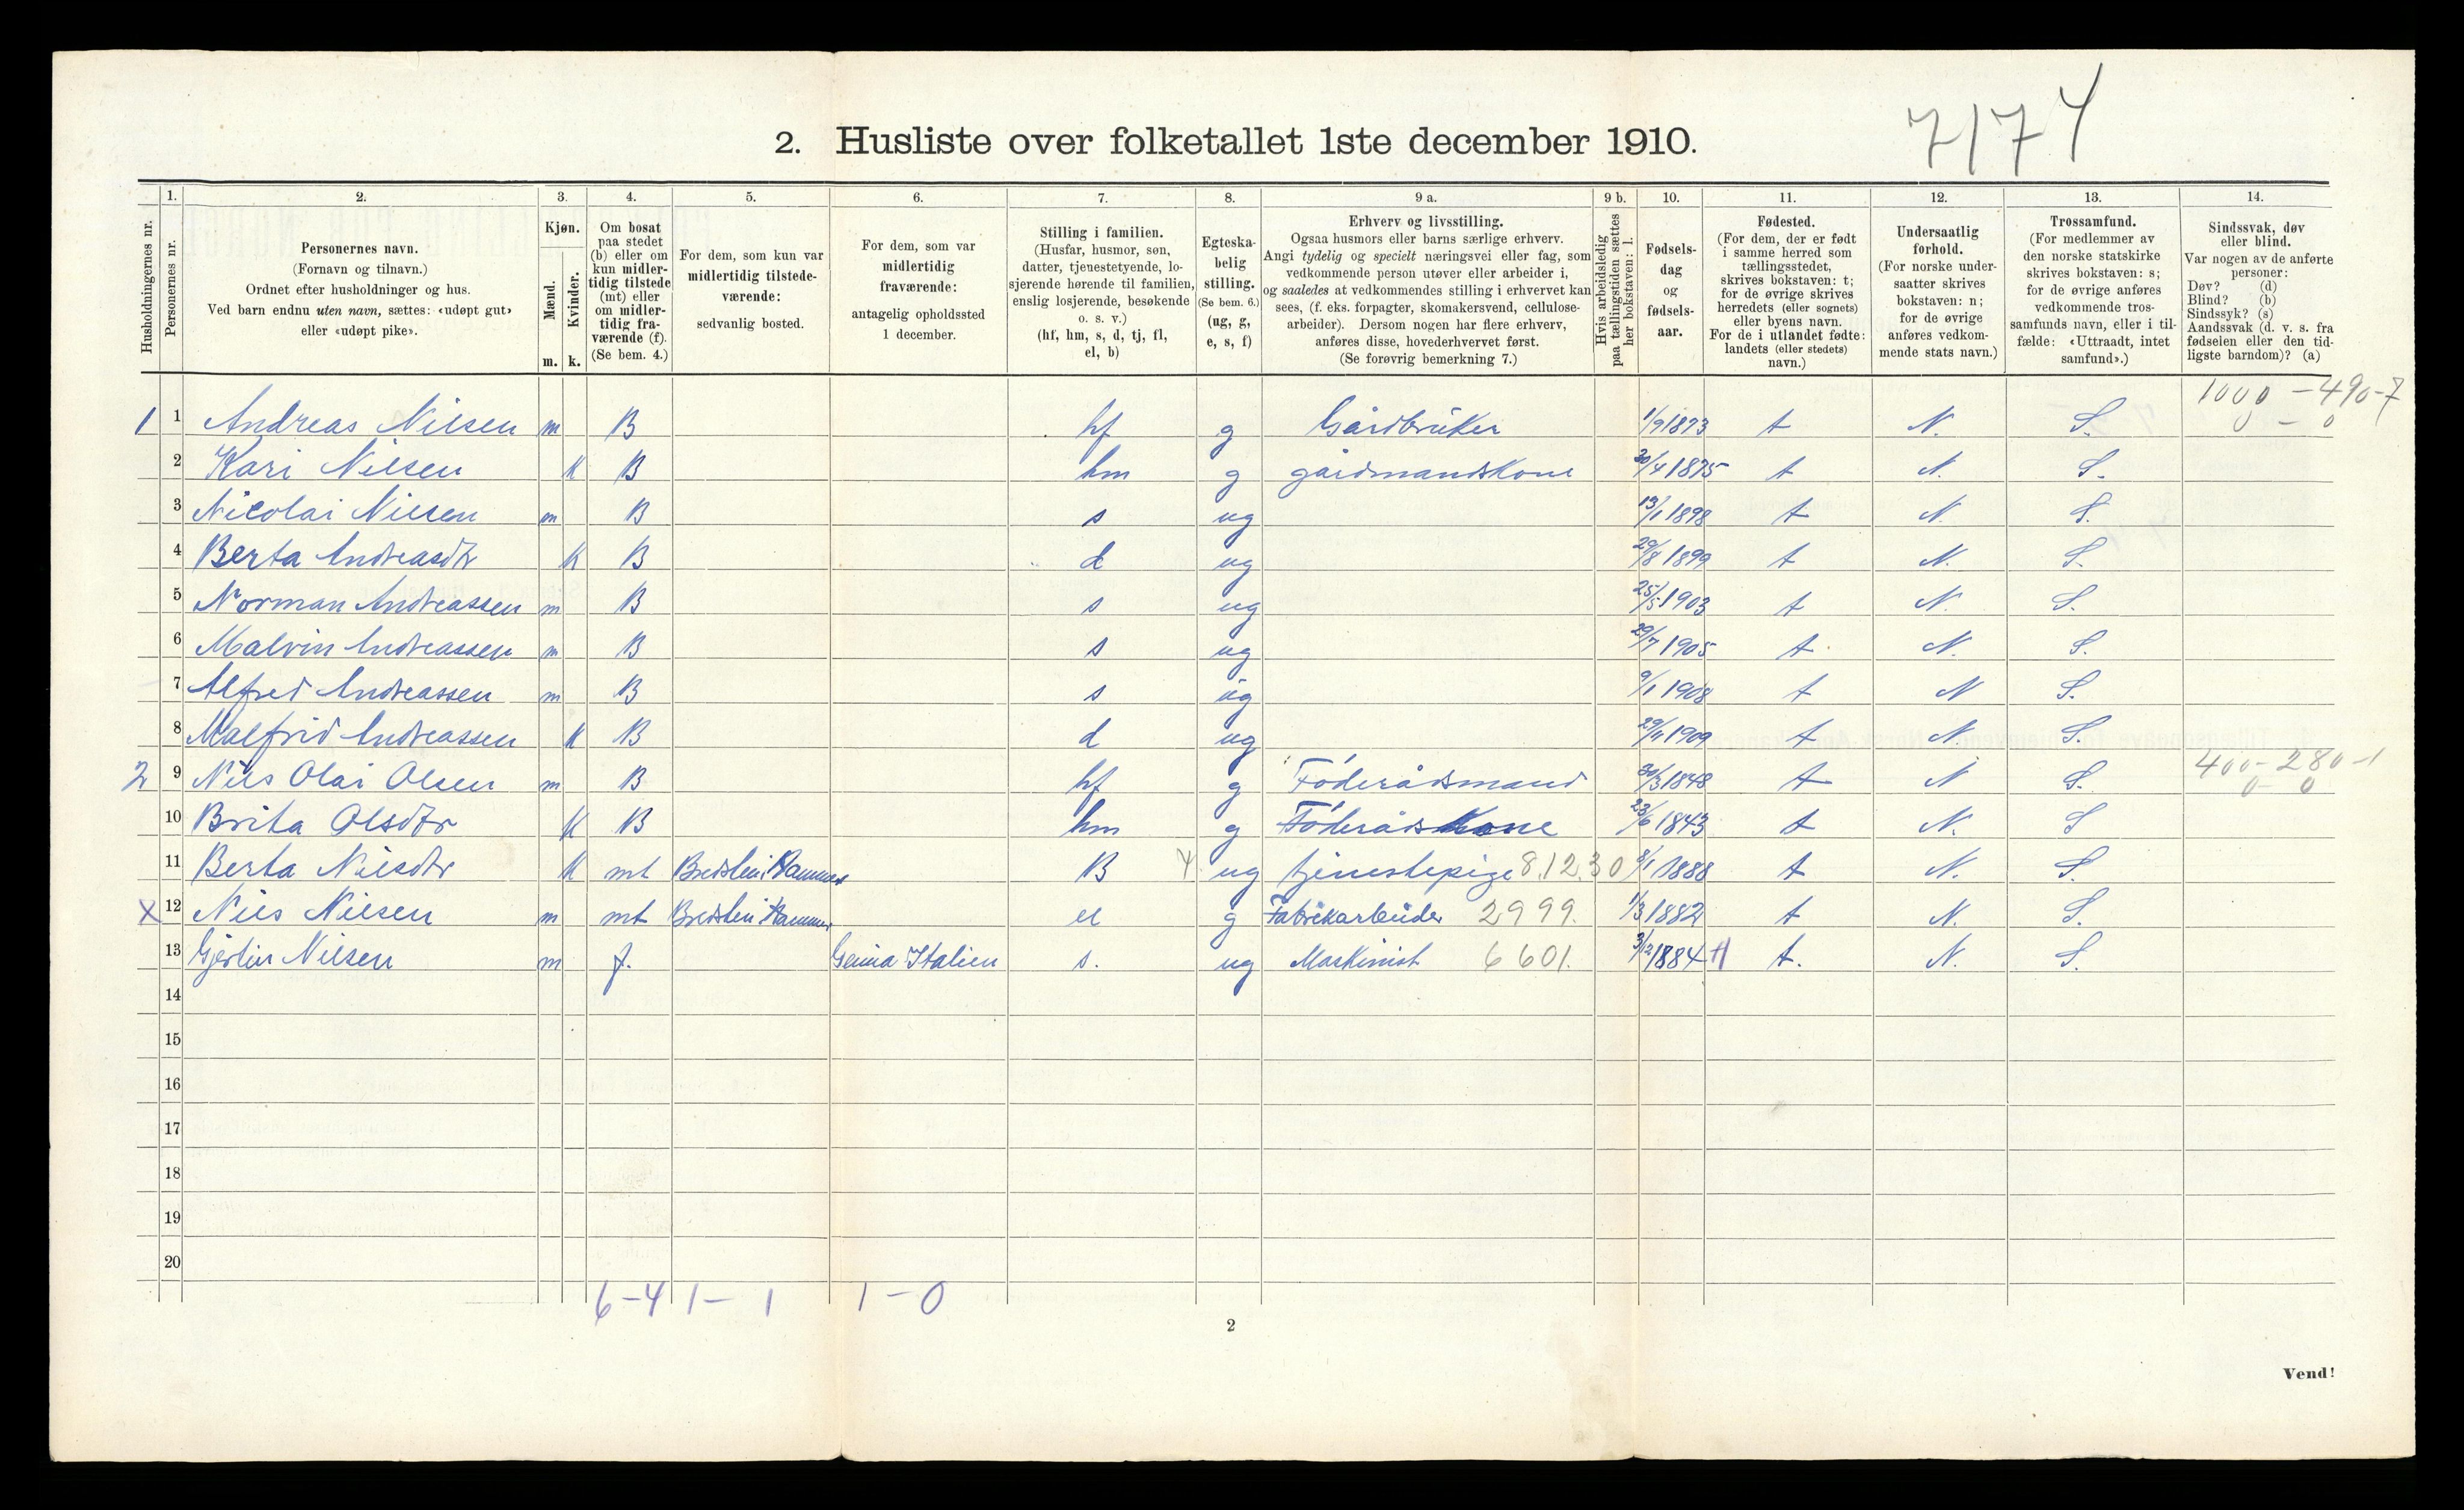 7174
2. Husliste over folketallet 1ste december 1910.
Husholdningernes nr.
1. Personernes nr.
2. Personernes navn. (Fornavn og tilnavn.) Ordnet efter husholdninger og hus. Ved barn endnu uten navn, sættes: «udøpt gut» eller «udøpt pike».
3. Kjøn. Mænd. m. Kvinder. k.
4. Om bosat paa stedet (b) eller om kun midlertidig tilstede (mt) eller om midlertidig fraværende (f). (Se bem. 4.)
5. For dem, som kun var midlertidig tilstedeværende: sedvanlig bosted.
6. For dem, som var midlertidig fraværende: antagelig opholdssted 1 december.
7. Stilling i familien. (Husfar, husmor, søn, datter, tjenestetyende, losjerende hørende til familien, enslig losjerende, besøkende o. s. v.) (hf, hm, s, d, tj, fl, el, b)
8. Egteskabelig stilling. (Se bem. 6.) (ug, g, e, s, f)
9 a. Erhverv og livsstilling. Ogsaa husmors eller barns særlige erhverv. Angi tydelig og specielt næringsvei eller fag, som vedkommende person utøver eller arbeider i, og saaledes at vedkommendes stilling i erhvervet kan sees, (f. eks. forpagter, skomakersvend, cellulosearbeider). Dersom nogen har flere erhverv, anføres disse, hovederhvervet først. (Se forøvrig bemerkning 7.)
9 b. Hvis arbeidsledig paa tællingstiden sættes her bokstaven: l.
10. Fødselsdag og fødselsaar.
11. Fødested. (For dem, der er født i samme herred som tællingsstedet, skrives bokstaven: t; for de øvrige skrives herredets (eller sognets) eller byens navn. For de i utlandet fødte: landets (eller stedets) navn.)
12. Undersaatlig forhold. (For norske undersaatter skrives bokstaven: n; for de øvrige anføres vedkommende stats navn.)
13. Trossamfund. (For medlemmer av den norske statskirke skrives bokstaven: s; for de øvrige anføres vedkommende trossamfunds navn, eller i tilfælde: «Uttraadt, intet samfund».)
14. Sindssvak, døv eller blind. Var nogen av de anførte personer: Døv? (d) Blind? (b) Sindssyk? (s) Aandssvak (d. v. s. fra fødselen eller den tidligste barndom)? (a)
1000 - 490-7
1 1 Andreas Nilsen m B hf g Gårdbruker 1/9 1873 t N. S. 0 - 0
2 Kari Nilsen k B hm g gårdmandskone 30/4 1875 t N. S.
3 Nicolai Nilsen m B s ug 13/1 1898 t N. S.
4 Berta Andreasdtr k B d ug 29/8 1899 t N. S.
5 Norman Andreassen m B s ug 25/5 1903 t N. S.
6 Malvin Andreassen m B s ug 29/7 1905 t N. S.
7 Alfred Andreassen m B s ug 9/1 1908 t N S.
8 Malfrid Andreassen k B d ug 29/11 1909 t N. S.
2 9 Nils Olai Olsen m B hf g Föderådsmand 30/3 1848 t N S. 400 - 280 - 1 0 - 0
10 Brita Olsdtr k B hm g Föderådskone 23/6 1843 t N. S
11 Berta Nilsdtr k mt Hammer B ug tjenestepige 8.12.30 8/1 1888 t N. S.
x 12 Nils Nilsen m mt Hammer el g Fabrikarbeider 2999. 1/3 1882 t N. S.
13 Nilsen m f. Italien s. ug Maskinist 6601. 3/2 1884 t. N. S.
14
15
16
17
18
19
20
6-4 1-1 1-0
2
Vend!